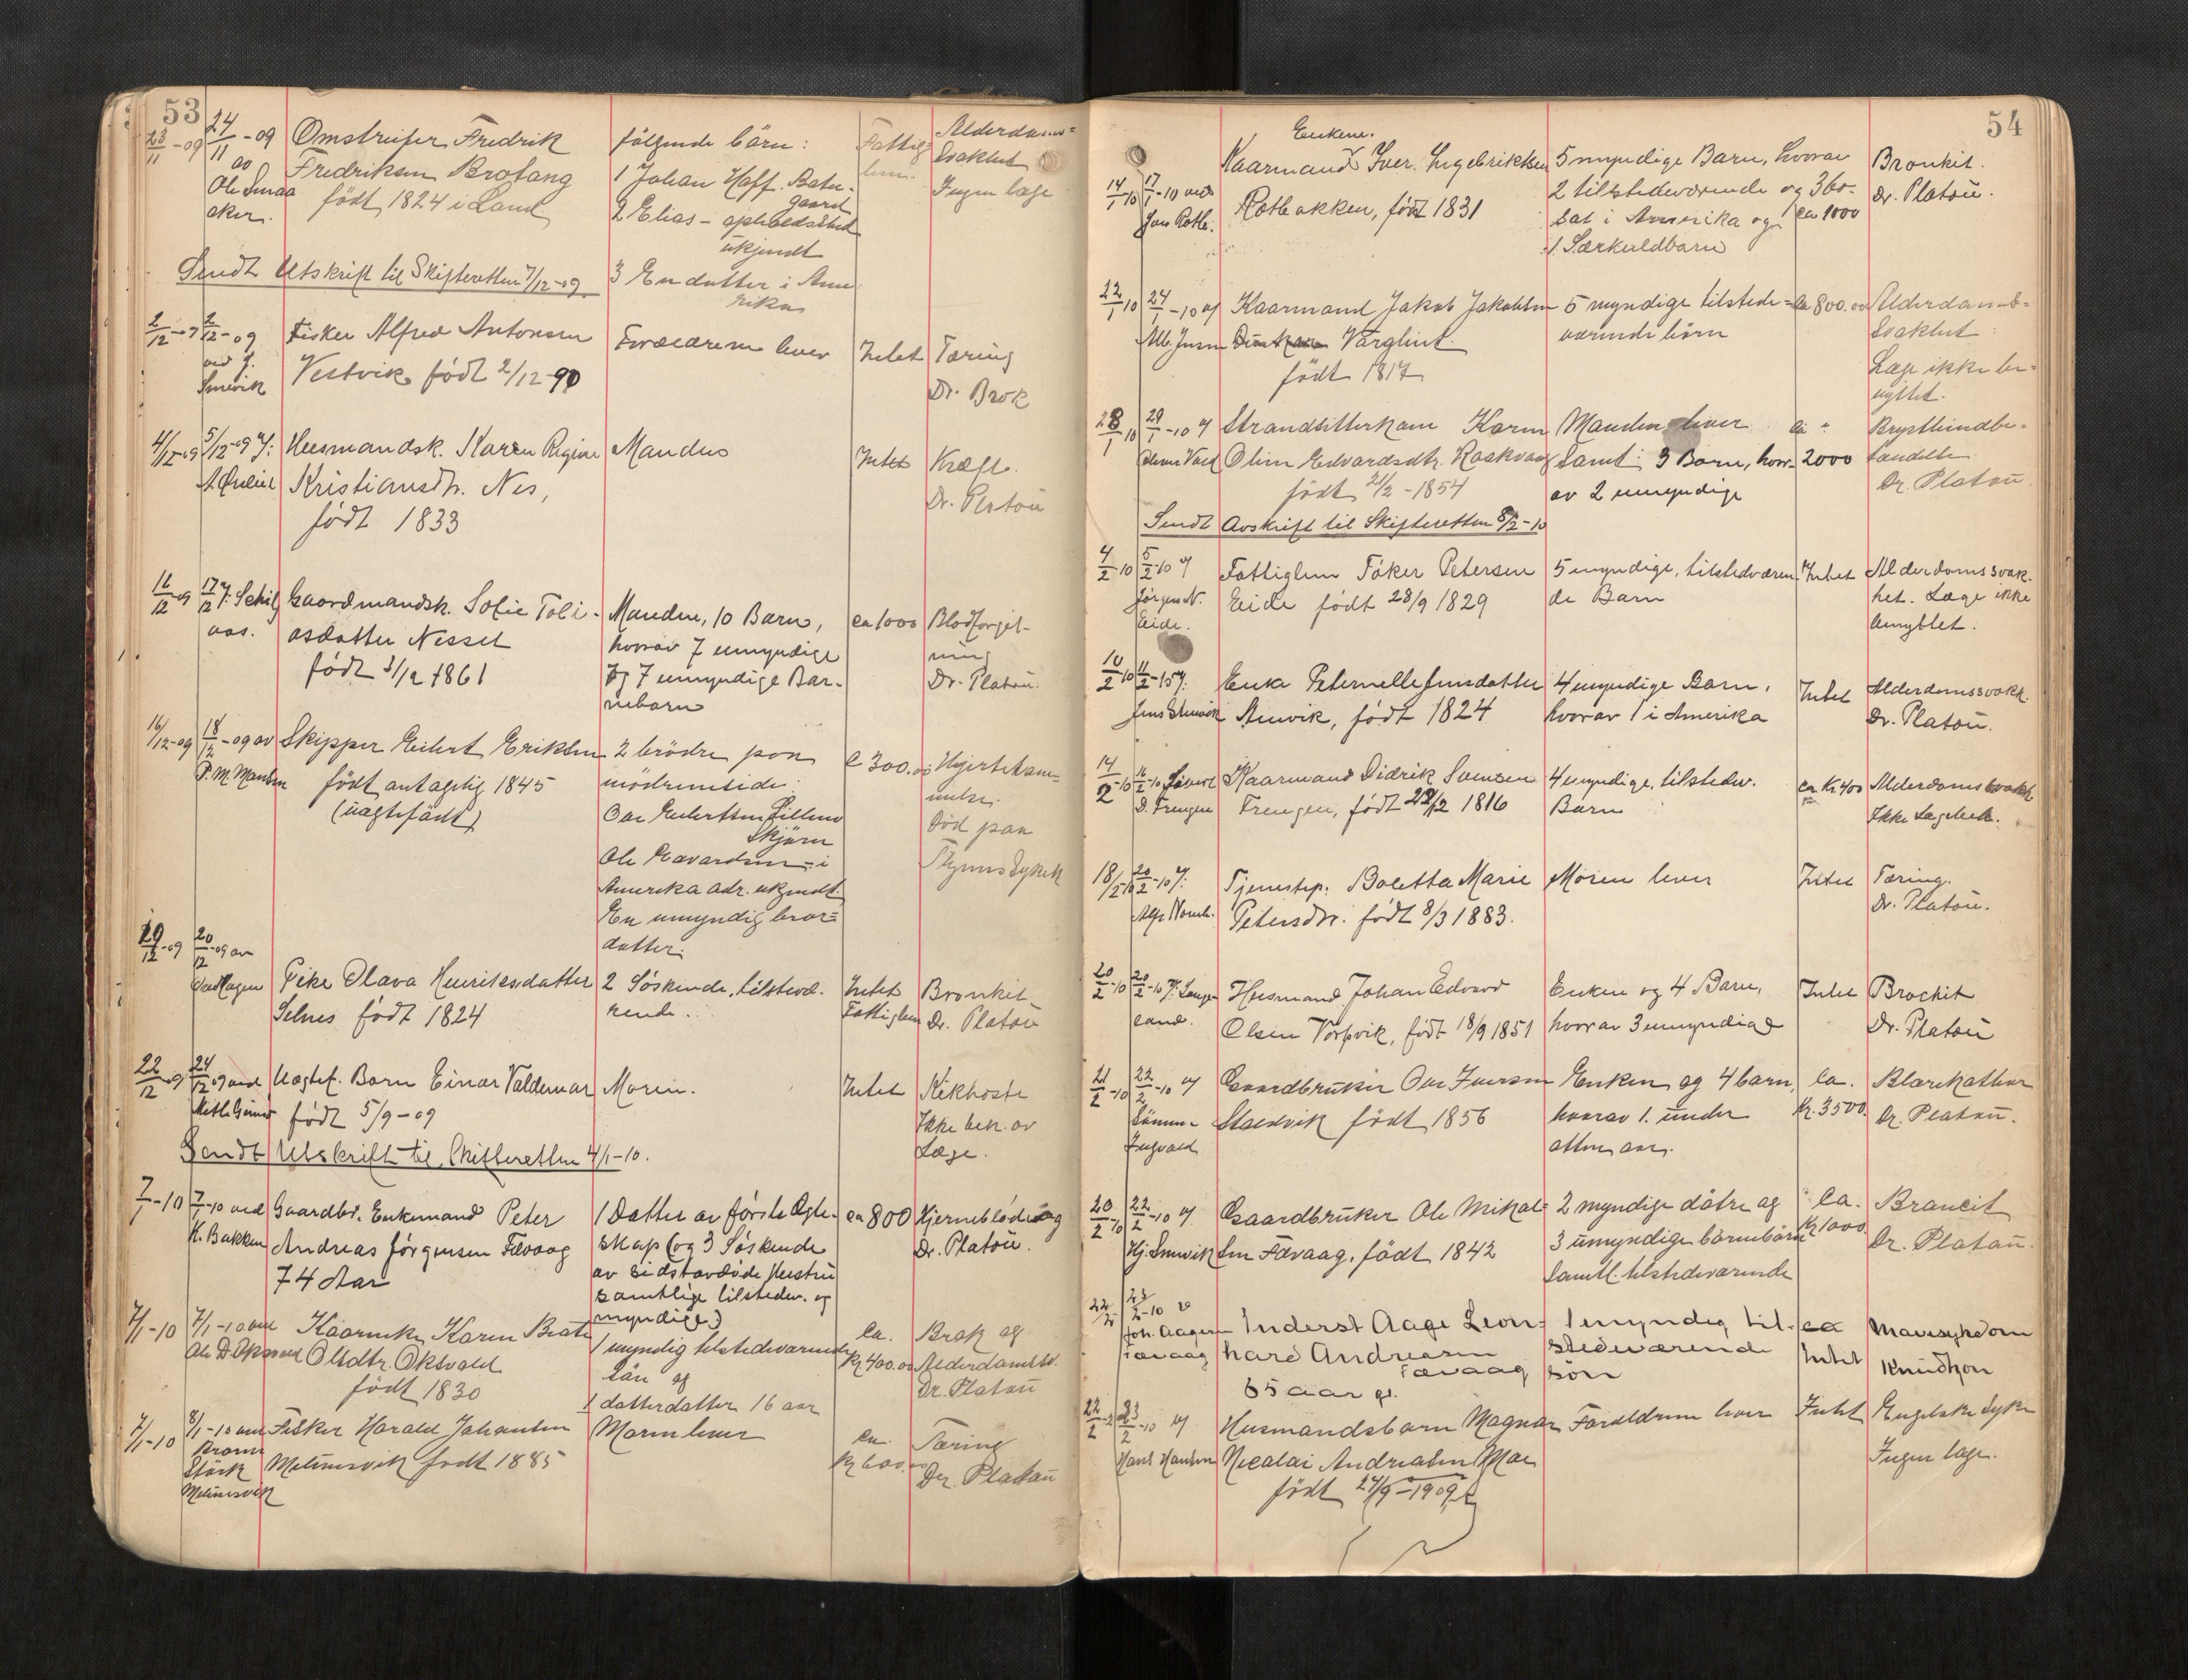 53
23/11 - 09 24/11 - 09 Omstreifer Fredrik følgende börn: Fattig Alderdoms=
av Fredriksen Brotang 1 Johan Hoff. Batn- lem. svakhet
Ole Smaa født 1824 i Land gaard Ingen læge
aker. 2 Elias - opholdssted
ukjendt
Sendt Utskrift til Skifteretten 7/12-09 3 En datter i Ame
rika
2/12-09 2/12-09 Fisker Alfred Antonsen Forældrene lever Intet Tæring
ved J. Vestvik født 2/12-90 Dr. Brok
Smevik
4/12-09 5/12-09 Huusmandsk. Karen Regine Manden Intet Kræft.
Kristiansdtr. Nes, Dr. Platou
født 1833
16/12-09 17/12 Gaardmandsk. Sofie Tobi- Manden, 10 Barn, ca 1000 Blodforgift-
aas. asdatter Nesset hvorav 7 umyndige ning
født 3/12 1861 og 7 umyndige Bar- Dr. Platou.
nebarn
16/12-09 18/12-09 av Skipper Eilert Eriksen 2 brödre paa 300.00 Hjertelam-
P. M. Mansen født antagelig 1845 mödrenside melse.
(uægtefödt) Ove Eilertsen Lillend Död paa
Skjørn
Ole Eavardsen i
Amerika adr. ukjendt
En umyndig bror=
datter.
20/12-09 20/12-09 av
Hagen Pike Olava Henriksdatter 2 Söskende, tilstevæ- Intet Bronkit
Selnes født 1824 rende. Fattiglem Dr. Platou
22/12-09 24/12-09 ved Uægtef. Barn Einar Valdemar Moren. Intet Kikhoste
født 5/9-09 Ikke beh. av
Læge.
Sendt Utskrift til Skifteretten 4/1-10.
7/1-10 7/1-10 ved Gaardbr. Enkemand Peter 1 Datter av förste Ægte- ca 800 Hjerneblödning
K. Bakken Andreas Jörgensen Fævaag skap (og 3 Söskende Dr. Platou.
74 Aar av sidstavdöde Hustru
samtlige tilstedev. og
myndige)
7/1-10 7/1-10 ved Kaarmke Karen Beate 1 myndig tilstedeværende Ca. Brok og
Ole D. Oksvold Olsdtr. Oksvold sön og Kr 400.00 Alderdomssv.
født 1830 1 datterdatter 16 aar Dr. Platou
7/1-10 8/1-10 ved Fisker Harald Johansen Moren lever Ca. Tæring
Melumsvik født 1885 Kr 600.00 Dr. Platou
Melumsvik
54
Enkem.
14/1 10 17/1-10 ved Kaarmand Iver Ingebrigtsen 5 myndige Barn, hvorav Bronkit.
Jon Rotb. Rotbakken, født 1831 2 tilstedeværende og 3 bo- Dr. Platou.
sat i Amerika og ca 1000
1 Særkuldbarn
22/1 10 24/1-10 af Kaarmand Jakob Jakobsen 5 myndige tilstede= Ca 800.00 Alderdoms-
Varglint. værende börn svakhet
født 1817 Læge ikke be-
nyttet.
28/1 10 29/1-10 af Strandsitterkone Karen Manden lever ca. Brysthindebe-
Oline Edvardsdtr. Raskvaag samt 3 Barn, hvor- 2000 tændelse
født 21/2-1854 av 2 umyndige Dr. Platou
Sendt Avskrift til Skifteretten 5/2-10
4/2 10 5/2-10 af Fattiglem Töker Petersen 5 myndige, tilstedværen- Intet Alderdomssvak-
Jörgen N. Eide født 28/9 1829 de Barn het. Læge ikke
Eide. benyttet.
10/2 10 11/2-10 af: Enke Peternelle Jensdatter 4 myndige Barn, Intet Alderdomssvakh.
Stenvik, født 1824 hvorav 1 i Amerika Dr. Platou.
14/2-10 16/2-10 Kaarmand Didrik Svensen 4 myndige, tilstedev. ca Kr. 400 Alderdomssvakh
D. Frengen Frengen, født 22/2 1816 Barn Ikke Lægebeh.
18/2-10 20/2-10 af: Tjenestep. Boletta Marie Moren lever Intet Tæring.
Petersdtr. født 8/3 1883. Dr. Platou.
20/2-10 20/2-10 af: Lange- Husmand Johan Edvard Enken og 4 Barn, Intet Brockit
land. Olsen Vorpvik, født 18/9 1851 hvorav 3 umyndige Dr. Platou
21/2-10 22/2-10 af Gaardbruker Ove Iversen Enken og 4 barn, Ca. Blærekathar
Sönnen Stadvik födt 1856 hvorav 1. under Kr. 3500. Dr. Platou.
Ingvald atten aar.
20/2-10 22/2-10 af Gaardbruker Ole Mikal- 2 myndige dötre og Ca. Broncit
Hj. Smevik sen Fævaag, født 1842 3 umyndige börnebörn Kr 1000 Dr. Platou.
samtl. tilstedeværende
22/2 23/2-10 v
Joh. Aagesen Inderst Aage Leon- 1 myndig til- ca Mavesykdom
Fævaag hard Andreasen stedeværende Intet Knudtzon
Fævaag sön
65 aar gl.
22/2 23/2-10 af Husmandsbarn Magnar Forældrene lever Intet Engelske syke
Hans Hansen Nicolai Andreasen Mæ Ingen læge.
født 27/9-1909